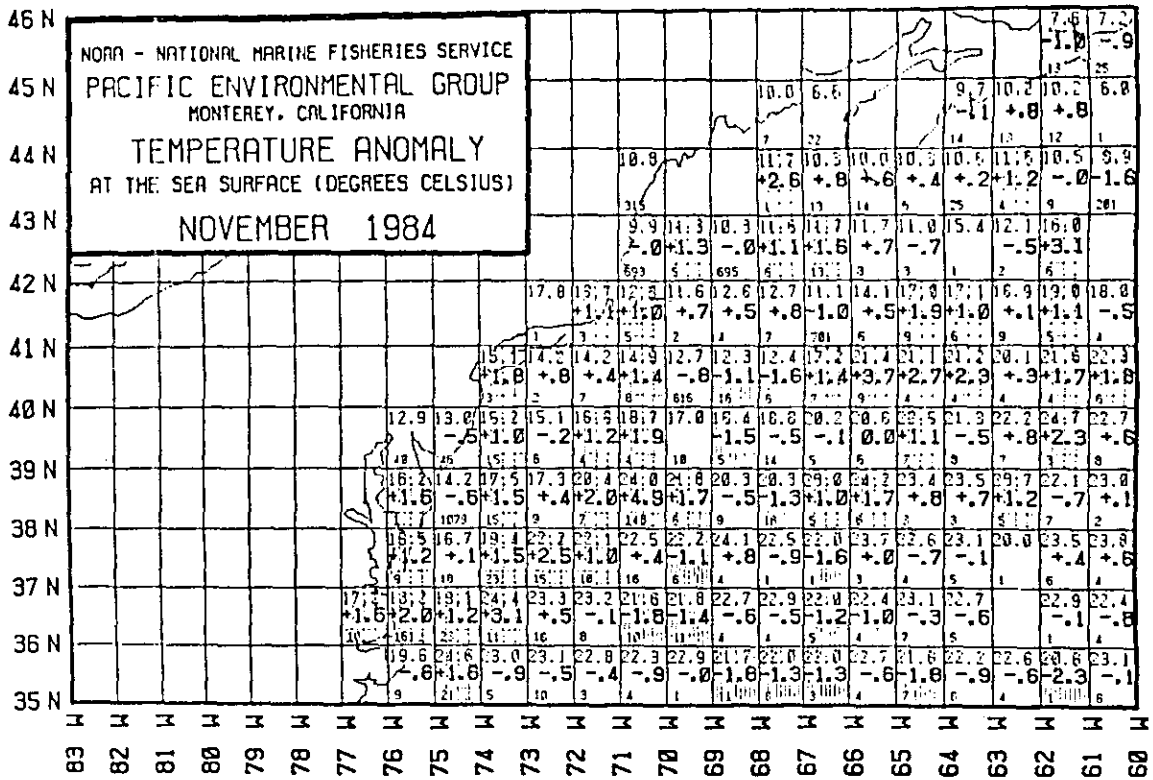 46 N
NOAA - NATIONAL MARINE FISHERIES SERVICE
PACIFIC ENVIRONMENTAL GROUP
MONTEREY, CALIFORNIA
TEMPERATURE ANOMALY
AT THE SEA SURFACE (DEGREES CELSIUS)
NOVEMBER 1984
7.6 7.2
-1.0 -.9
13 25
45 N
10.0 6.6 9.7 10.2 10.2 6.0
-.1 +.8 +.8
7 22 14 13 12 1
44 N
10.8 11.7 10.3 10.0 10.3 10.6 11.6 10.5
+2.6 +.8 +.6 +.4 +.2 +1.2 -.0 -1.6
315 13 14 25 4 9 201
43 N
9.9 11.3 10.3 11.6 11.7 11.7 11.0 15.4 12.1 16.0
-.0 +1.3 -.0 +1.1 +1.6 +.7 -.7 -.5 +3.1
693 5 695 6 13 3 3 1 2 6
42 N
17.8 12.8 11.6 12.6 12.7 11.1 14.1 17.0 17.1 16.9 19.0 18.0
+1.1 +1.0 +.7 +.5 +.8 -1.0 +.5 +1.9 +1.0 +.1 +1.1 -.5
1 3 5 2 4 7 201 6 9 6 9 5 4
41 N
15.1 14.2 14.2 14.9 12.7 12.3 12.4 17.2 21.4 21.1 21.2 20.1 21.6 22.3
+1.8 +.8 +.4 +1.4 -.8 -1.1 -1.6 +1.4 +3.7 +2.7 +2.3 +.3 +1.7 +1.8
3 2 7 8 616 16 6 7 9 4 4 4 4 6
40 N
12.9 13.0 15.2 15.1 16.6 18.7 17.0 16.4 18.8 20.2 20.6 22.5 21.3 22.2 24.7 22.7
-.5 +1.0 -.2 +1.2 +1.9 -1.5 -.5 -.1 0.0 +1.1 -.5 +.8 +2.3 +.6
40 46 15 6 4 4 10 5 14 5 6 7 8 7 3 8
39 N
16.2 14.2 17.5 17.3 20.4 24.0 21.8 20.3 20.3 23.0 24.2 23.4 23.5 22.1 23.0
+1.6 -.6 +1.5 +.4 +2.0 +4.9 +1.7 -.5 -1.3 +1.0 +1.7 +.8 +.7 +1.2 -.7 +.1
1073 15 9 7 148 6 9 18 5 6 3 3 5 7 2
38 N
16.5 16.7 19.4 22.7 22.1 22.5 22.2 24.1 22.5 22.0 23.7 22.6 23.1 20.0 23.5 23.8
+1.2 +.1 +1.5 +2.5 +1.0 +.4 -1.1 +.8 -.9 -1.6 +.0 -.7 -.1 +.4 +.6
9 18 23 15 10 16 6 4 1 1 3 4 5 1 6 4
37 N
18.2 19.1 24.4 23.3 23.2 21.6 21.8 22.7 22.9 22.0 22.4 23.1 22.7 22.9 22.4
+1.6 +2.0 +1.2 +3.1 +.5 -.1 -1.8 -1.4 -.6 -.5 -1.2 -1.0 -.3 -.6 -.1 -.8
10 16 23 11 16 8 10 11 4 4 5 4 7 5 1 4
36 N
19.6 24.6 23.0 23.1 22.8 22.3 22.9 21.7 22.0 22.0 22.7 21.6 22.2 22.6 20.6 23.1
-.8 +1.6 -.9 -.5 -.4 -.9 -.0 -1.8 -1.3 -1.3 -.6 -1.8 -.9 -.6 -2.3 -.1
9 21 5 10 3 4 1 11 6 3 4 7 6 4 1 6
35 N
83 W 82 W 81 W 80 W 79 W 78 W 77 W 76 W 75 W 74 W 73 W 72 W 71 W 70 W 69 W 68 W 67 W 66 W 65 W 64 W 63 W 62 W 61 W 60 W